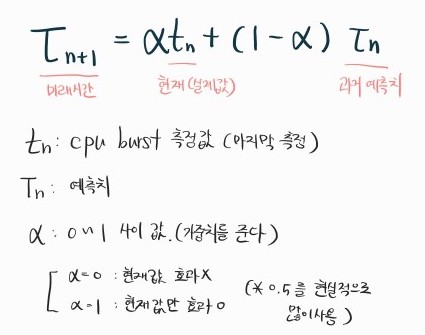 τn+1 = αtn + (1-α) τn
미래시간 현재(실제값) 과거 예측치
tn : cpu burst 측정값 (마지막 측정)
τn : 예측치
α : 0~1 사이 값. (가중치를 준다)
α=0 : 현재값 효과 X
α=1 : 현재값만 효과 O
(* 0.5를 현실적으로
많이사용)